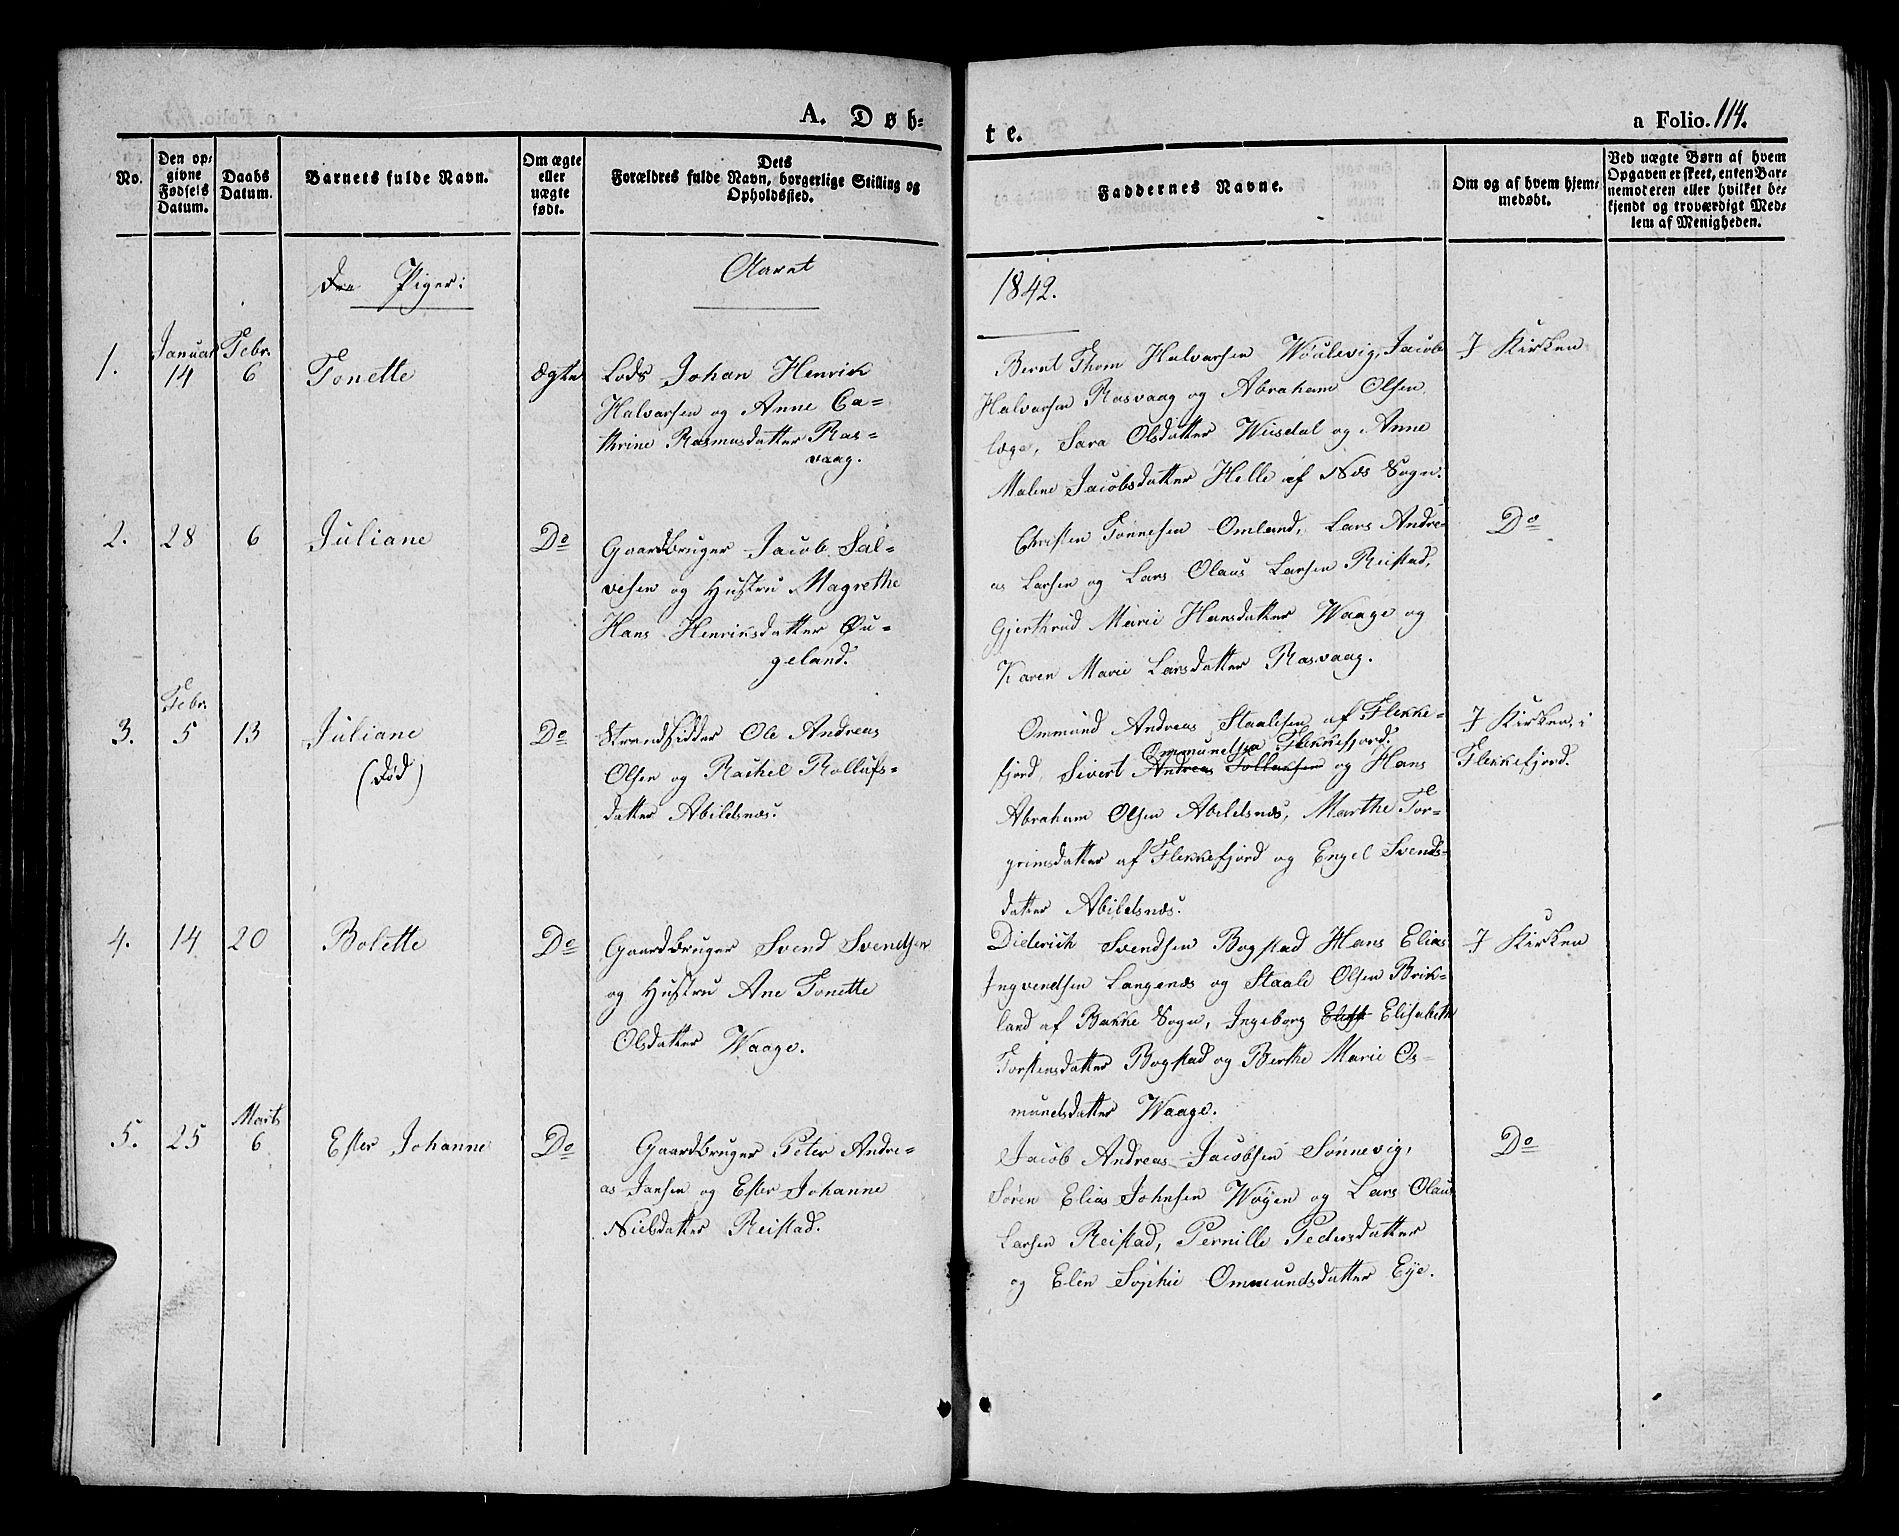 A. Døb=
te.
a Folio. 114.
No.
Den op=
givne
Fødsels
Datum.
Daabs
Datum.
Barnets fulde Navn.
Om ægte
eller
uægte
født.
Dets
Forældres fulde Navn, borgerlige Stilling og
Opholdssted.
Faddernes Navne.
Om og af hvem hjem=
medøbt.
Ved uægte Børn af hvem
Opgaven er skeet, enten Bar=
nemoderen eller hvilket be=
kjendt og troværdigt Med=
lem af Menigheden.
Piger:
Aaret
1842.
1.
Januar
14
Febr.
6
Tonette
Ægte
Lods Johan Henrik
Halvorsen og Anne Ca=
thrine Rasmusdatter Ras=
vaag.
Bernt Thom Halvorsen Jacob
Halvorsen Rasvaag og Abraham Olsen
Sara Olsdatter og Anne
Malene Jacobsdatter Helle af Næs Sogn.
I Kirken
2.
28
6
Juliane
Do
Gaardbruger Jacob Sal=
vesen og Hustru Magrethe
Hans Henriksdatter Øu=
geland.
Christen Tønnesen Omland, Lars Andre=
as Larsen og Lars Olaus Larsen Reistad,
Gjerthrud Marie Hansdatter Waage og
Karen Marie Larsdatter Rasvaag.
Do
3.
Febr.
5
13
Juliane
(død)
Do
Strandsidder Ole Andreas
Olsen og Rachel Rollufs=
datter Abildsnæs.
Ommund Andreas Staalesen af Flekke=
Ommundsen Flekkefjord.
fjord, Sivert Andreas Tollaksen og Hans
Abraham Olsen Abildsnæs, Marthe Tor=
grimsdatter af Flekkefjord og Engel Svends=
datter Abildsnæs.
I Kirken i
Flekkefjord.
4.
14
20
Bolette
Do
Gaardbruger Svend Svendsen
og Hustru Ane Tonette
Olsdatter Waage.
Diderich Svendsen Bogstad Hans Elias
Ingvendsen Langenæs og Staale Olsen Birk=
land af Bakke Sogn, Ingeborg Elisabeth
Torstensdatter Bogstad og Berthe Marie Os=
mundsdatter Waage.
I Kirken
5.
25
Marts
6
Ester Johanne
Do
Gaardbruger Peter Andre=
as Jansen og Ester Johanne
Nielsdatter Reistad.
Jacob Andreas Jacobsen Sønnevig,
Søren Elias Johnsen Wøyen og Lars Olaus
Larsen Reistad, Pernille Pedersdatter
og Elen Sophie Ommundsdatter Eye.
Do